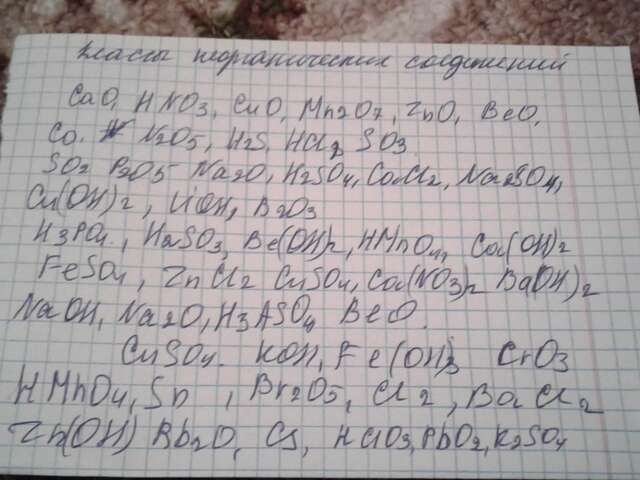 Классы неорганических соединений
CaO, HNO3, CuO, Mn2O7, ZnO, BeO,
Co. N2O5, H2S, HCl, SO3
SO2 P2O5 Na2O, H2SO4, CaCl2, Na2SO4,
Cu(OH)2, LiOH, B2O3
H3PO4, H2SO3, Be(OH)2, HMnO4, Ca(OH)2
FeSO4, ZnCl2 CuSO4, Ca(NO3)2 Ba(OH)2
NaOH, Na2O, H3ASO4 BeO.
CuSO4. KOH, Fe(OH)3 CrO3
HMnO4, Sn, Br2O5, Cl2, BaCl2
Zn(OH) Rb2O, Cs, HClO3, PbO2, K2SO4